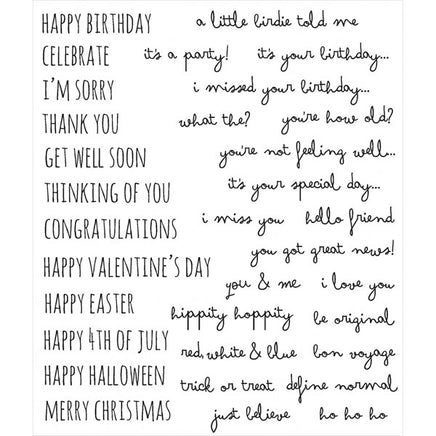 HAPPY BIRTHDAY a little birdie told me
CELEBRATE it's a party! it's your birthday...
I'M SORRY i missed your birthday...
THANK YOU what the? you're how old?
GET WELL SOON you're not feeling well...
THINKING OF YOU it's your special day...
CONGRATULATIONS i miss you hello friend
you got great news!
HAPPY VALENTINE'S DAY you & me i love you
HAPPY EASTER hippity hoppity be original
HAPPY 4TH OF JULY red, white & blue bon voyage
HAPPY HALLOWEEN trick or treat define normal
MERRY CHRISTMAS just believe ho ho ho